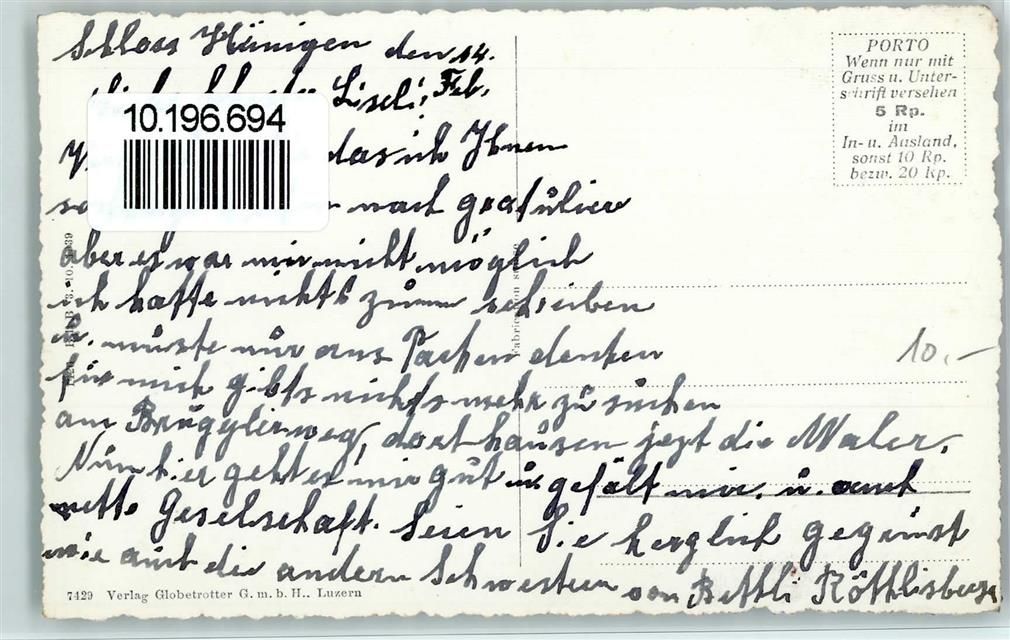 Schloss Hünigen den 14.
Liseli, Feb.
das ich Ihnen
nach gratülier
aber es war mir nicht möglich
ich hatte nichts zum schreiben
u. müste nür ans Pachen denken
für mich gibts nichts mehr zü süchen
am Brügglerweg, dort haüsen jezt die Maler.
Nün hier geht es mir güt u. gefält mir. u. auch
nette Geselschaft. Seien Sie herzlich gegrüsst
wie auch die andern Schwestern von Bethli Röthlisberger
10.196.694
PORTO
Wenn nur mit
Gruss u. Unter-
schrift versehen
5 Rp.
im
In- u. Ausland,
sonst 10 Rp.
bezw. 20 Rp.
10.-
7429 Verlag Globetrotter G. m. b. H., Luzern